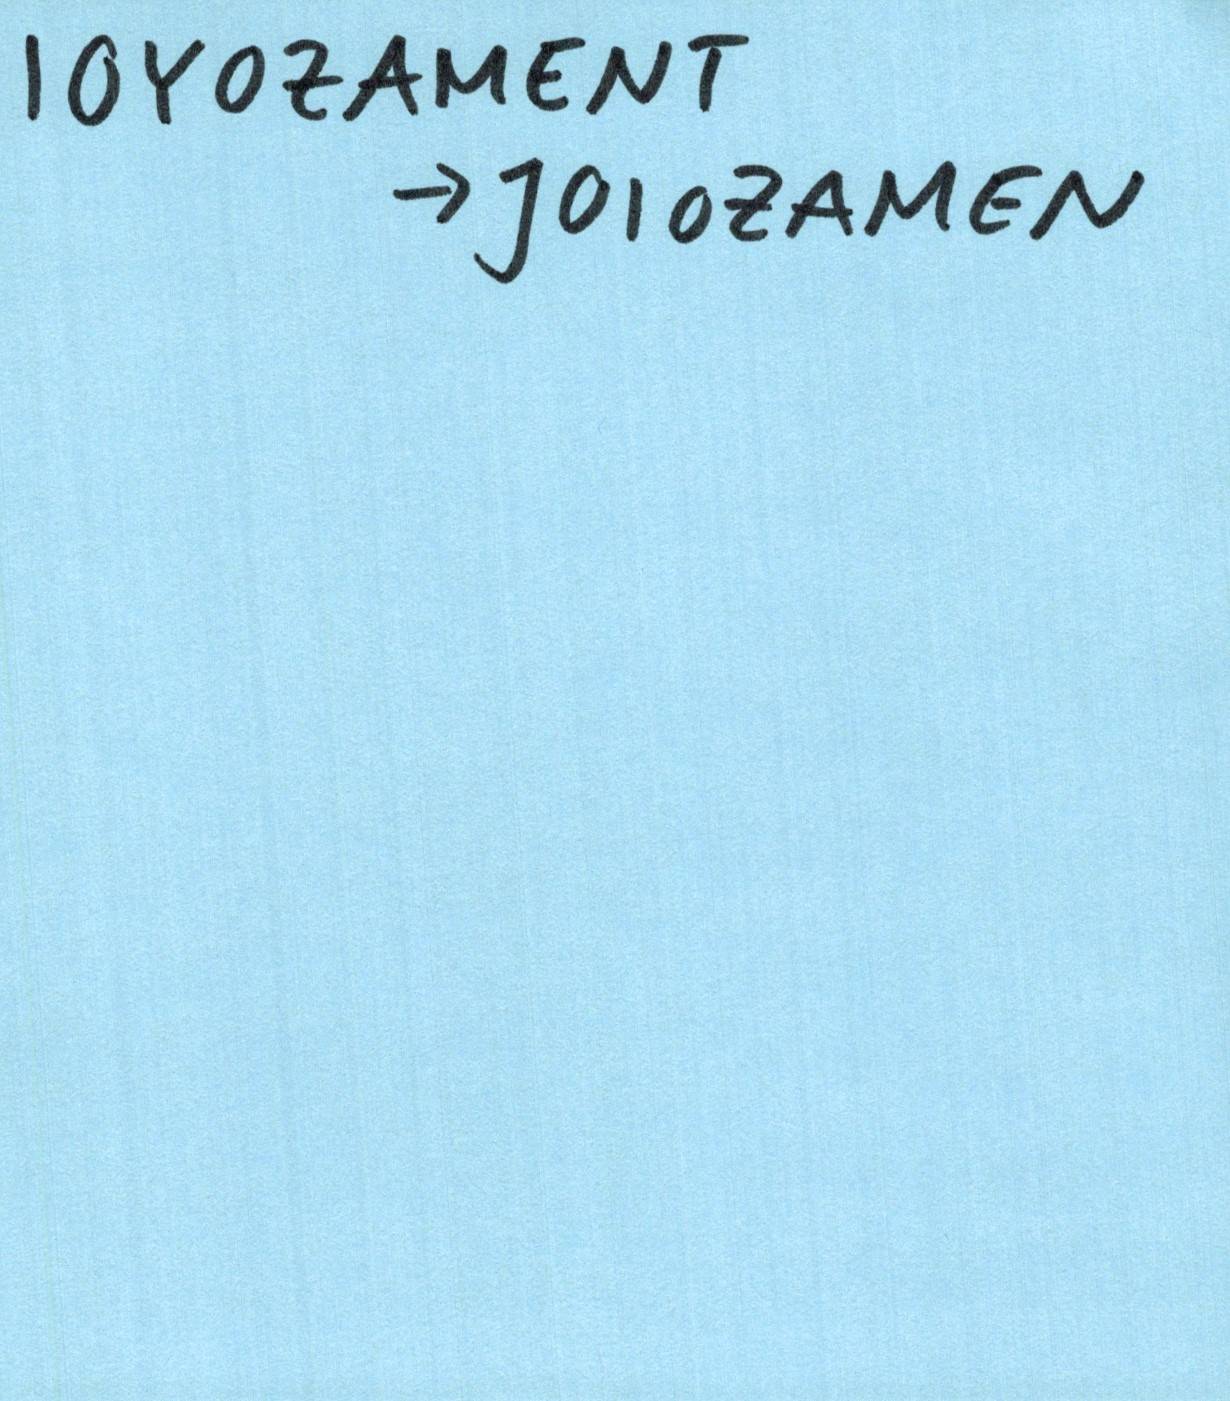 IOYOZAMENT
→JOIOZAMEN